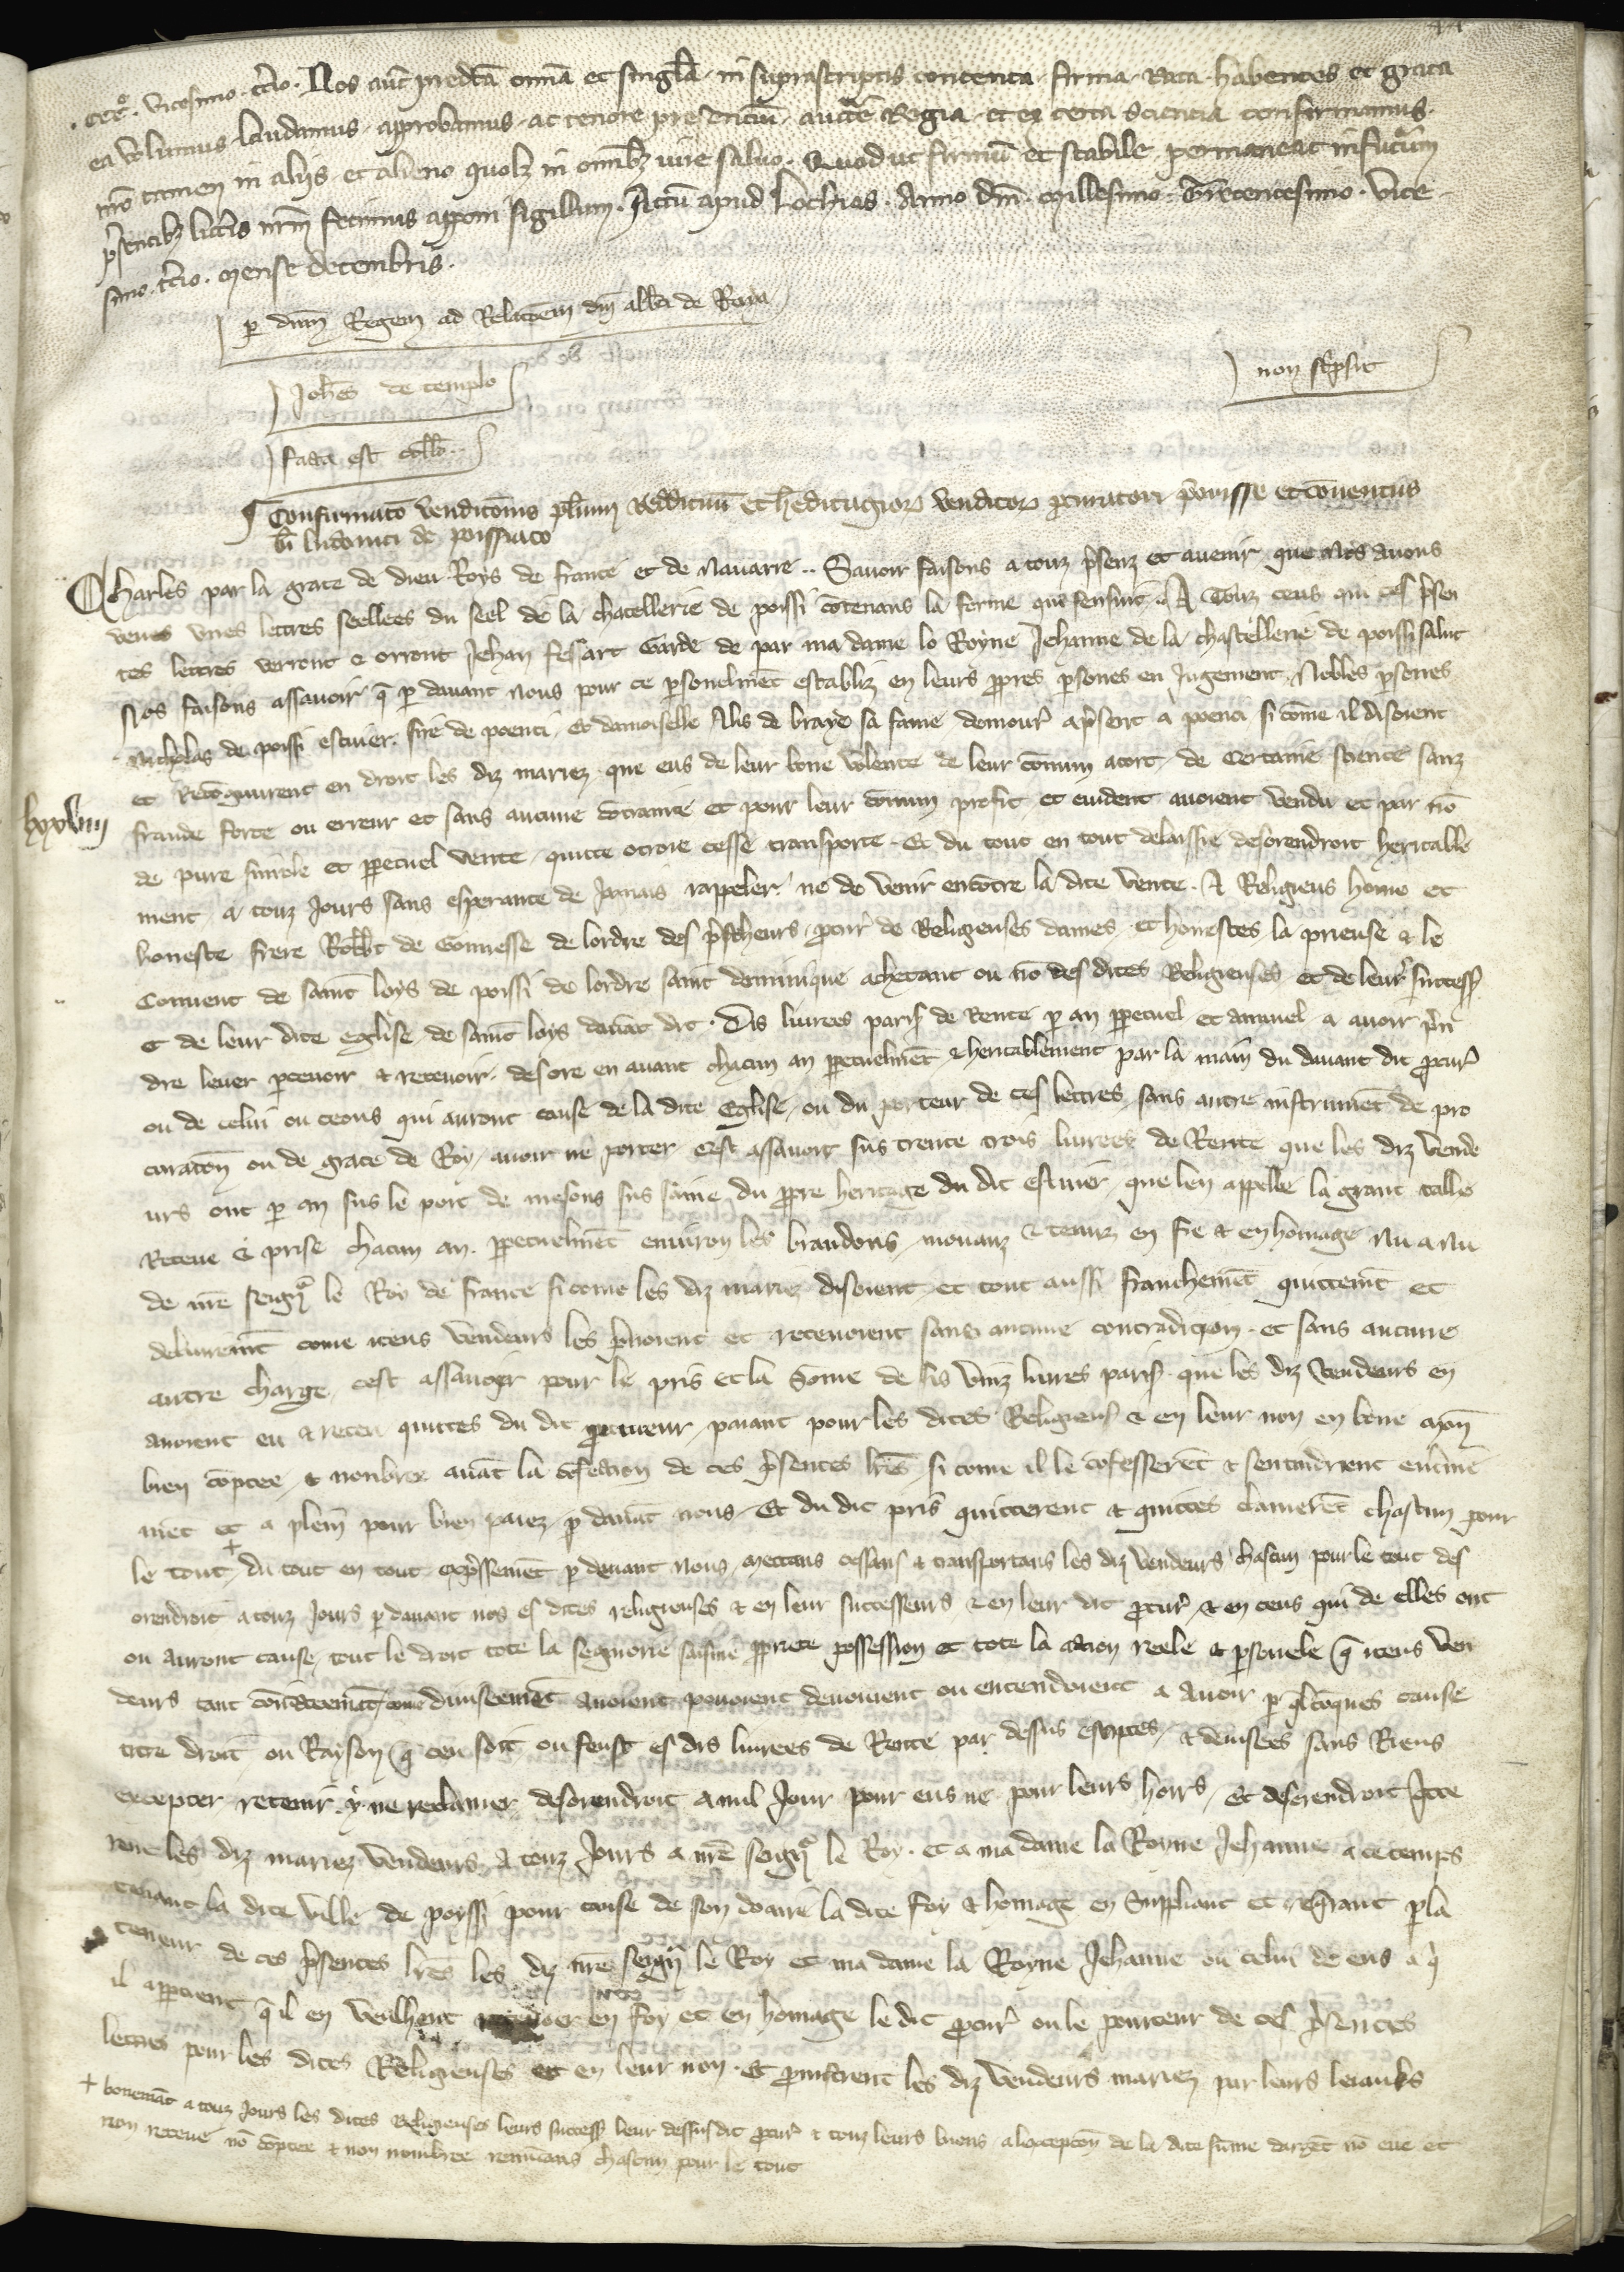 44
. CCC°. vicesimo. tcio. Nos aut predcta omia et singla in suprascriptis contenta firma rata habentes et grata
ea volumus laudamus approbamus ac tenore presencium auctte Regia et ex certa sciencia confirmamus.
nro tamen in aliis et alieno quolz in omnibz iure salvo. Quod ut firmu et stabile permaneat in futurum
psentibz litteris nrm fecimus apponi sigillum. Actu apud Lochias. Anno dni. millesimo. Trecentesimo. vice
simo. tcio. mense decembris.
p dnm Regem ad Relacoem dni albti de Roya
Johes de templo
non scripsit
facta est collo..
Confirmato vendicionis plurium reddituu et heritagior venditor procuratori priorisse et conventus
bi ludovici de poissiaco
Charles par la grace de dieu Roys de france et de Navarre.. Savoir faisons a touz psenz et avenir que nos avons
veues unes lettres seellees du seel de la chatellerie de poissi contenans la forme qui sensuit. A Touz ceus qui ces psen
tes lettres verront & orront Jehan fessart Garde de par ma dame lo Royne Jehanne de la chastellerie de poissi salut
Nos faisons assavoir q p davant nous pour ce psonelmet establiz en leurs ppres psones en Jugement. Nobles psones
Nicholas de poissi escuier. sire de poenci et damoiselle Alis de braye sa fame demour a psent a poenci si come il disoient
et recognurent en droit les diz mariez que eus de leur bone volente de leur comun acort de certaine science sanz
lxxviii
fraude force ou erreur et sans aucune contrainte et pour leur comun profit et evident avoient vendu et par no
de pure simple et ppetuel vente quitte otroie cesse transporte. Et du tout en tout delaissie desorendroit heritable
ment a touz jours sans esperance de jamais rappeler ne de venir encotre la dite vente. A Religieus home et
honeste frere Robbt de Gonnesse de lordre des prescheurs procur de Religieuses dames et honestes la prieuse & le
Couvent de saint loys de poissi de lordre saint dominique achetant ou no des dites Religieuses et de leur success
& de leur dite eglise de saint loys davat dit. Dis livrees paris de Rente p an ppetuel et annuel a avoir pren
dre lever pcevoir & recevoir desore en avant chacun an ppetuelmet & heritablement par la main du davant dit procur
ou de celui ou ceous qui auront cause de la dite Eglise ou du porteur de ces lettres sans autre instrumet de pro
curation ou de grace de Roy avoir ne porter cest assavoir sus trente trois livrees de Rente que les diz vende
urs ont p an sus le port de mesons sus saine du ppre heritage du dit escuier que len appelle la grant taille
Receue & prise chacun an ppetuelmet environ les brandons. mouvanz & tenuz en fie & en homage nu a nu
de nre seigr le Roy de france si come les diz mariez disoient et tout aussi franchemet quittemt et
delivremt come iceus vendeurs les pnoient et recevoient sans aucune contradicion. et sans aucune
autre charge cest assavoir pour le pris et la some de sis vinz livres paris que les diz vendeurs en
avoient eu & receu quittes du dit procureur paiant pour les dites Religieus & en leur non en bone mon
bien coptee & nonbree avat la cofection de ces psentes lres si come il le cofesseret & sentindrent enterine
met et a plein pour bien paiez p davat nous. Et du dit pris quitterent & quittes clameret chascun pour
le tout + du tout en tout expssemet p devant nous. mettans cessans & transportans les diz vendeurs chascun pour le tout des
orendroit a touz jours p davant nos es dites religieuses & en leur successeurs & en leur dit procur & en ceus qui de elles ont
ou auront cause tout le droit tote la segnorie saisine pprete possession et tote la action reele & psonele q iceus ven
deurs tant coniointemat come diviseemet avoient povoient devoient ou entendoient a avoir p qlcoques cause
titre droit ou Rayson q ceu soit ou feust es dis livrees de Rente par dessus escriptes & devisees sans Riens
excepter retenir y ne reclamer desorendroit a nul jour pour eus ne pour leurs hoirs. Et desorendroit
les diz mariez vendeurs A touz jours a nre seigr le Roy. et a ma dame la Royne Jehanne a ce temps
tenant la dite ville de poyssi pour cause de son doaire la dite foy & homage en suppliant et reqrant p la
teneur de ces psentes lres les diz nre seigr le Roy et ma dame la Royne Jehanne ou celui de eus a q
il apptient q il en veilhent en foy et en homage le dit procur ou le porteur de ces psentes
lettres pour les dites Religieuses et en leur non. Et promistrent les diz vendeurs mariez par leurs leiautes
+ bonemat a touz jours les dites Religieuses leurs success leur dessusdit procur & touz leurs biens a lexcepton de la dite sume dargt no eue et
non receue no coptee & non nombree renucans chascun pour le tout